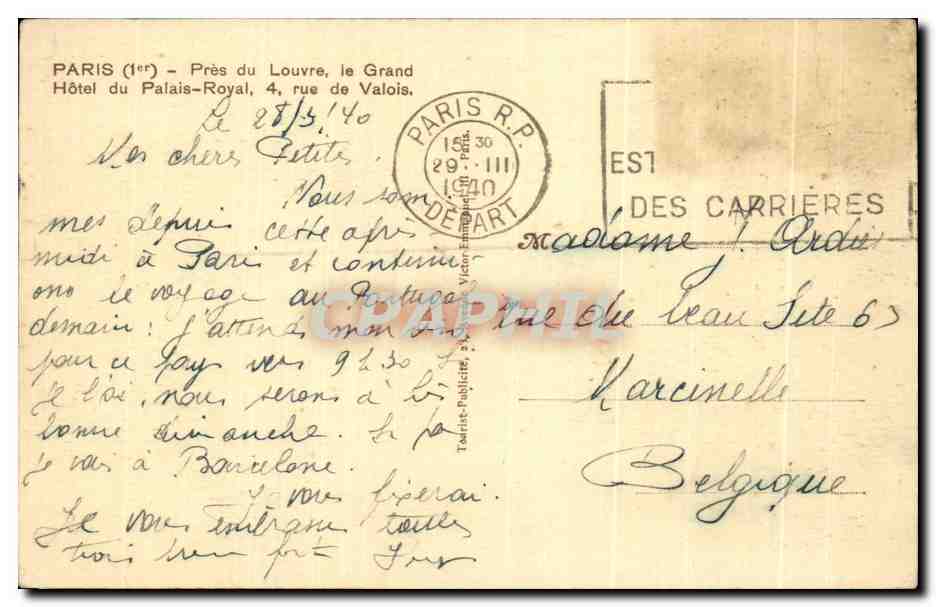 PARIS (1er) - Près du Louvre, le Grand
Hôtel du Palais-Royal, 4, rue de Valois.
Le 28/3/40
Mes chères Petites.
Nous som
mes depuis cette après
midi à Paris et continu-
ons le voyage au Portugal
demain: J'attends mon
pour ce pays vers 9h30
je l'ai, nous serons à Lis
bonne dimanche.
je vais à Barcelone.
Je vous fixerai.
Je vous embrasse toutes
trois bien
PARIS R.P.
15 30
29 III
1940
DÉPART
EST
DES CARRIÈRES
Madame J.
rue du Beau Site 63
Marcinelle
Belgique
Tourist-Publicité, Victor-Emmanuel III, Paris.
CRAPHIL